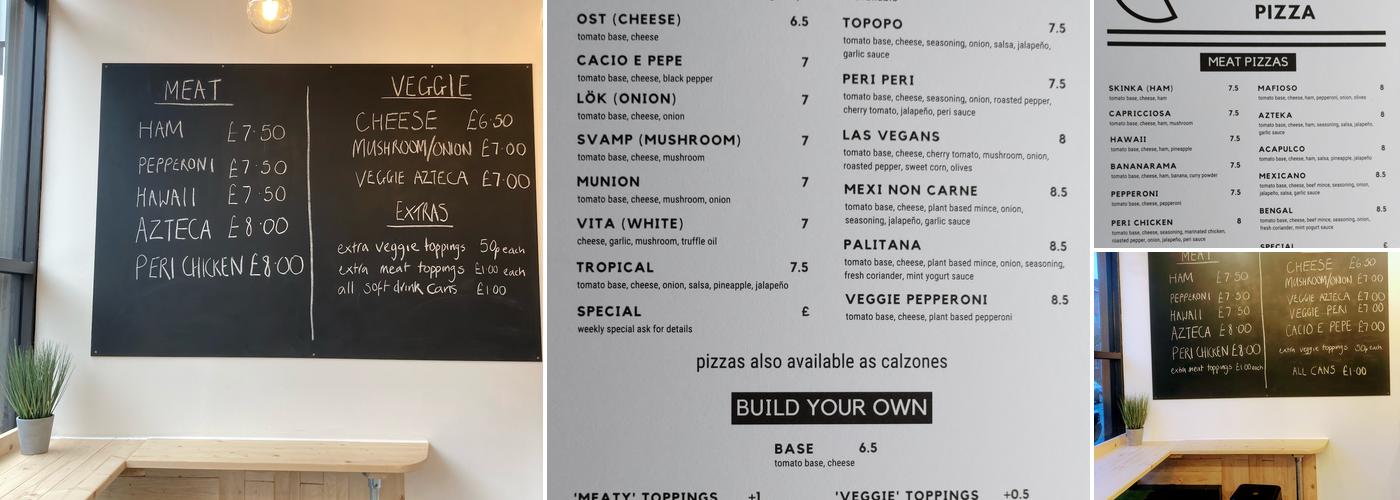 MEAT
HAM £7.50
PEPPERONI £7.50
HAWAII £7.50
AZTECA £8.00
PERI CHICKEN £8.00
VEGGIE
CHEESE £6.50
MUSHROOM/ONION £7.00
VEGGIE AZTECA £7.00
EXTRAS
extra veggie toppings 50p each
extra meat toppings £1.00 each
all soft drink cans £1.00
OST (CHEESE) 6.5
tomato base, cheese
CACIO E PEPE 7
tomato base, cheese, black pepper
LÖK (ONION) 7
tomato base, cheese, onion
SVAMP (MUSHROOM) 7
tomato base, cheese, mushroom
MUNION 7
tomato base, cheese, mushroom, onion
VITA (WHITE) 7
cheese, garlic, mushroom, truffle oil
TROPICAL 7.5
tomato base, cheese, onion, salsa, pineapple, jalapeño
SPECIAL £
weekly special ask for details
TOPOPO 7.5
tomato base, cheese, seasoning, onion, salsa, jalapeño,
garlic sauce
PERI PERI 7.5
tomato base, cheese, seasoning, onion, roasted pepper,
cherry tomato, jalapeño, peri sauce
LAS VEGANS 8
tomato base, cheese, cherry tomato, mushroom, onion,
roasted pepper, sweet corn, olives
MEXI NON CARNE 8.5
tomato base, cheese, plant based mince, onion,
seasoning, jalapeño, garlic sauce
PALITANA 8.5
tomato base, cheese, plant based mince, onion, seasoning,
fresh coriander, mint yogurt sauce
VEGGIE PEPPERONI 8.5
tomato base, cheese, plant based pepperoni
pizzas also available as calzones
BUILD YOUR OWN
BASE 6.5
tomato base, cheese
'MEATY' TOPPINGS +1
'VEGGIE' TOPPINGS +0.5
PIZZA
MEAT PIZZAS
SKINKA (HAM) 7.5
tomato base, cheese, ham
CAPRICCIOSA 7.5
tomato base, cheese, ham, mushroom
HAWAII 7.5
tomato base, cheese, ham, pineapple
BANANARAMA 7.5
tomato base, cheese, ham, banana, curry powder
PEPPERONI 7.5
tomato base, cheese, pepperoni
PERI CHICKEN 8
tomato base, cheese, seasoning, marinated chicken,
roasted pepper, onion, jalapeño, peri sauce
MAFIOSO 8
tomato base, cheese, ham, pepperoni, onion, olives
AZTEKA 8
tomato base, cheese, ham, seasoning, salsa, jalapeño,
garlic sauce
ACAPULCO 8
tomato base, cheese, ham, salsa, pineapple, jalapeño
MEXICANO 8.5
tomato base, cheese, beef mince, seasoning, onion,
jalapeño, salsa, garlic sauce
BENGAL 8.5
tomato base, cheese, beef mince, seasoning, onion,
fresh coriander, mint yogurt sauce
SPECIAL £
MEAT
HAM £7.50
PEPPERONI £7.50
HAWAII £7.50
AZTECA £8.00
PERI CHICKEN £8.00
extra meat toppings £1.00 each
CHEESE £6.50
MUSHROOM/ONION £7.00
VEGGIE AZTECA £7.00
VEGGIE PERI £7.00
CACIO E PEPE £7.00
extra veggie toppings 50p each
ALL CANS £1.00